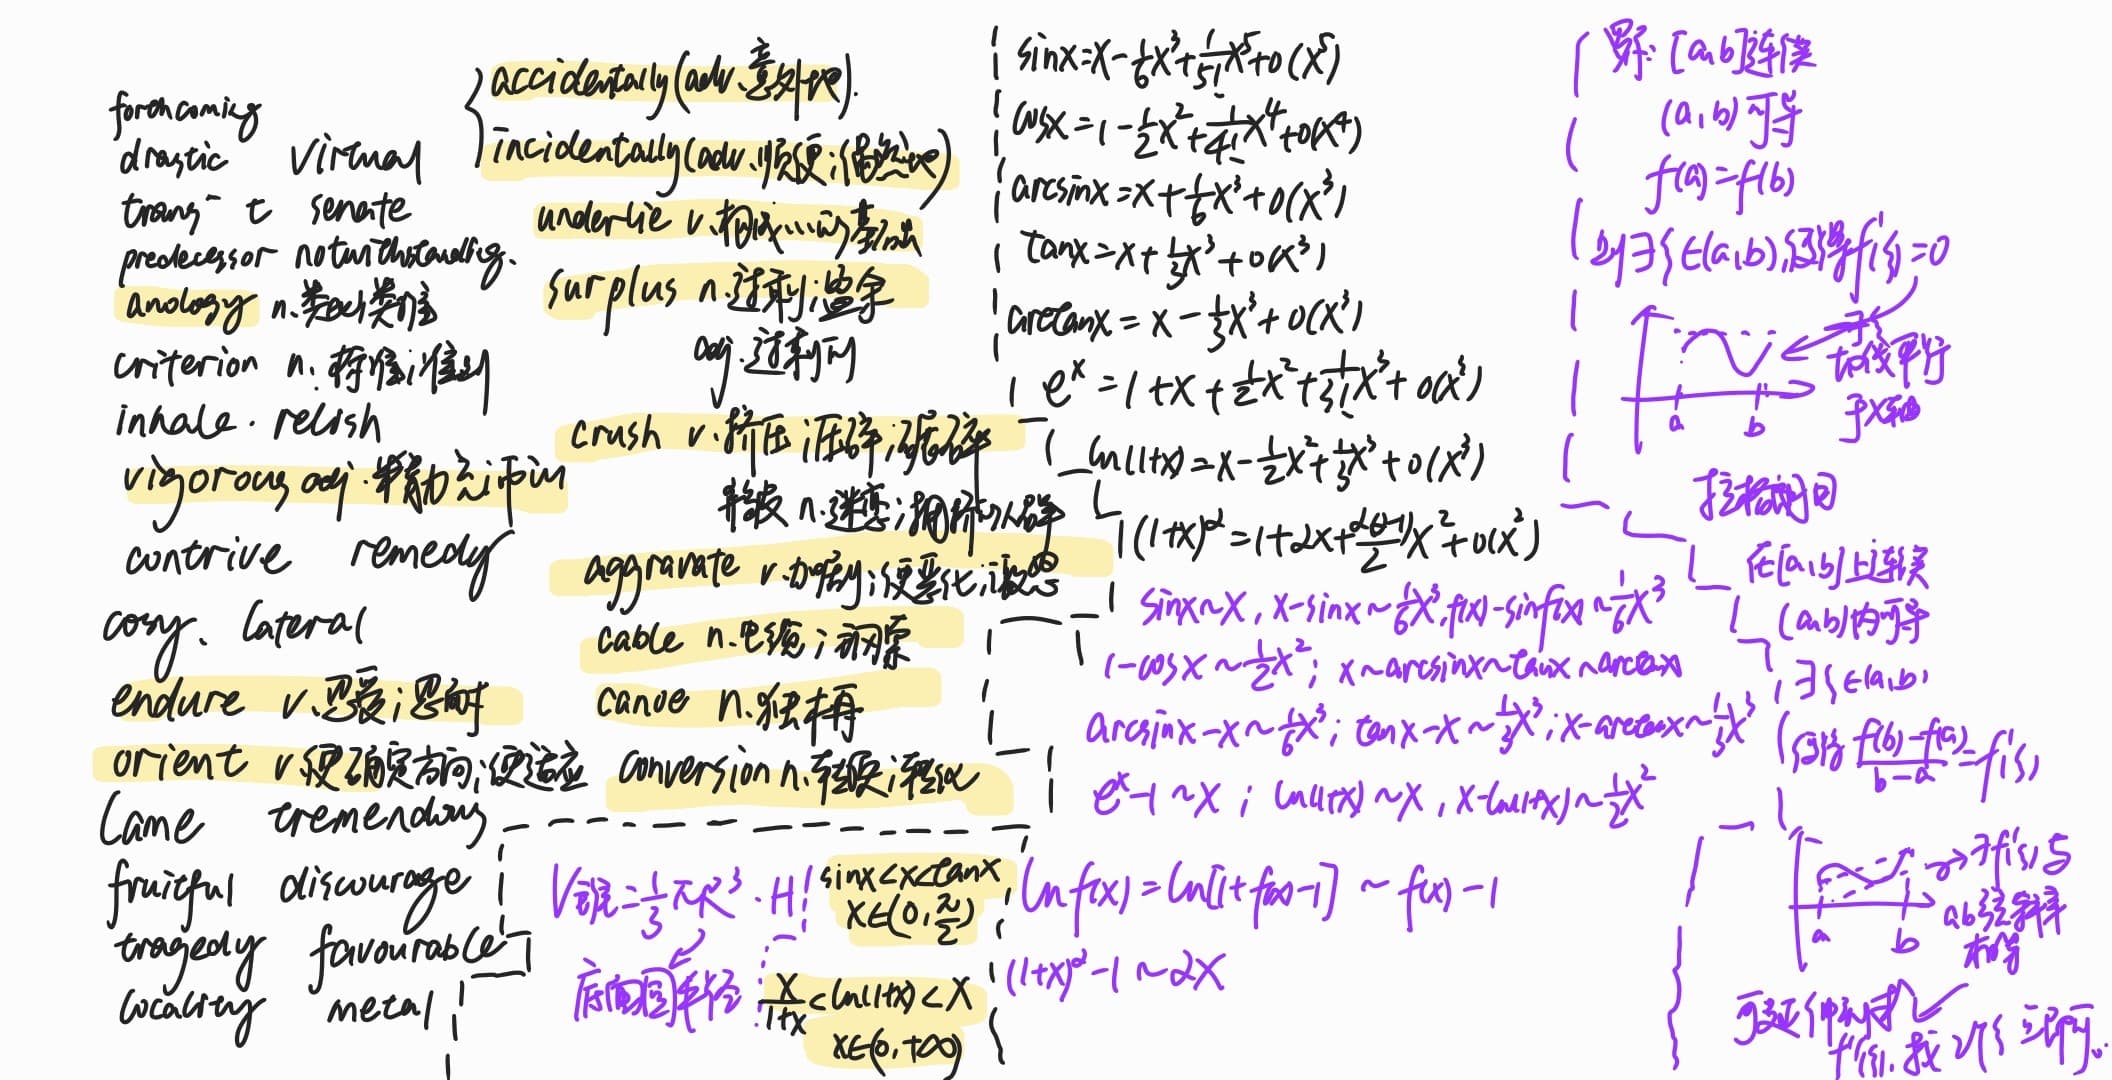 forthcoming
drastic virtual
trans- t senate
predecessor notwithstanding.
anology n.类比;类推
criterion n.标准;准则
inhale. relish
vigorous adj.精力充沛的
contrive remedy
cosy. lateral
endure v.忍受;忍耐
orient v.使确定方向;使适应
lame tremendous
fruitful discourage
tragedy favourable
locality metal
accidentally(adv.意外地).
incidentally(adv.顺便;偶然地)
underlie v.构成……的基础
surplus n.过剩;盈余
adj.过剩的
crush v.挤压;压碎;破碎
n.迷恋;拥挤的人群
aggravate v.加剧;使恶化;激怒
cable n.电缆;钢索
canoe n.独木舟
conversion n.转换;转化
sinx=x-1/6x³+1/5!x⁵+o(x⁵)
cosx=1-1/2x²+1/4!x⁴+o(x⁴)
arcsinx=x+1/6x³+o(x³)
tanx=x+1/3x³+o(x³)
arctanx=x-1/3x³+o(x³)
eˣ=1+x+1/2x²+1/3!x³+o(x³)
ln(1+x)=x-1/2x²+1/3x³+o(x³)
(1+x)^α=1+αx+α(α-1)/2 x²+o(x²)
sinx~x, x-sinx~1/6x³, f(x)-sinf(x)~1/6x³
1-cosx~1/2x²; x~arcsinx~tanx~arctanx
arcsinx-x~1/6x³; tanx-x~1/3x³; x-arctanx~1/3x³
eˣ-1~x; ln(1+x)~x, x-ln(1+x)~1/2x²
lnf(x)=ln[1+f(x)-1]~f(x)-1
(1+x)^α-1~αx
V锥=1/3πR²·H
底面圆半径
sinx<x<tanx
x∈(0,π/2)
x/(1+x)<ln(1+x)<x
x∈(0,+∞)
罗尔:[a,b]连续
(a,b)可导
f(a)=f(b)
则∃ξ∈(a,b),使得f'(ξ)=0
切线平行
于x轴
a b
拉格朗日
在[a,b]上连续
(a,b)内可导
∃ξ∈(a,b)
使得 f(b)-f(a)/b-a=f'(ξ)
∃f'(ξ)与
ab弦斜率
相等
a b
f''(ξ).找2个ξ即可.